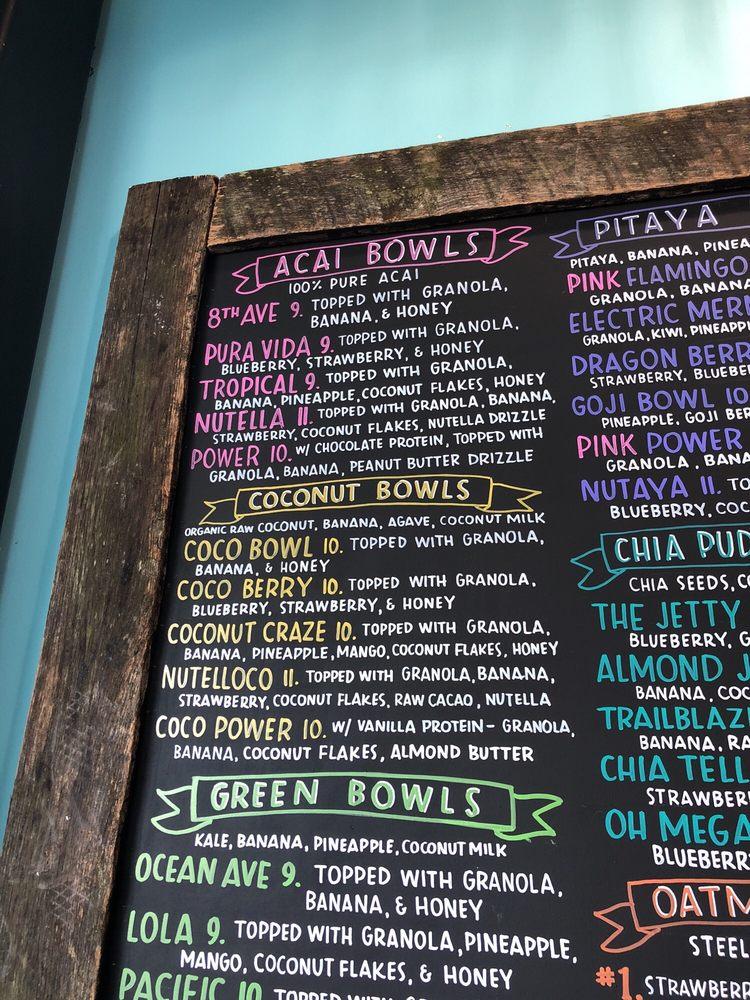 ACAI BOWLS
100% PURE ACAI
8TH AVE 9. TOPPED WITH GRANOLA,
BANANA, & HONEY
PURA VIDA 9. TOPPED WITH GRANOLA,
BLUEBERRY, STRAWBERRY, & HONEY
TROPICAL 9. TOPPED WITH GRANOLA,
BANANA, PINEAPPLE, COCONUT FLAKES, HONEY
NUTELLA 11. TOPPED WITH GRANOLA, BANANA,
STRAWBERRY, COCONUT FLAKES, NUTELLA DRIZZLE
POWER 10. W/ CHOCOLATE PROTEIN, TOPPED WITH
GRANOLA, BANANA, PEANUT BUTTER DRIZZLE
COCONUT BOWLS
ORGANIC RAW COCONUT, BANANA, AGAVE, COCONUT MILK
COCO BOWL 10. TOPPED WITH GRANOLA,
BANANA, & HONEY
COCO BERRY 10. TOPPED WITH GRANOLA,
BLUEBERRY, STRAWBERRY, & HONEY
COCONUT CRAZE 10. TOPPED WITH GRANOLA,
BANANA, PINEAPPLE, MANGO, COCONUT FLAKES, HONEY
NUTELLOCO 11. TOPPED WITH GRANOLA, BANANA,
STRAWBERRY, COCONUT FLAKES, RAW CACAO, NUTELLA
COCO POWER 10. W/ VANILLA PROTEIN- GRANOLA,
BANANA, COCONUT FLAKES, ALMOND BUTTER
GREEN BOWLS
KALE, BANANA, PINEAPPLE, COCONUT MILK
OCEAN AVE 9. TOPPED WITH GRANOLA,
BANANA, & HONEY
LOLA 9. TOPPED WITH GRANOLA, PINEAPPLE,
MANGO, COCONUT FLAKES, & HONEY
PACIFIC 10. TOPPED WITH
PITAYA
PITAYA, BANANA, PINEA
PINK FLAMINGO
GRANOLA, BANANA
ELECTRIC MER
GRANOLA, KIWI, PINEAPP
DRAGON BERR
STRAWBERRY, BLUEBE
GOJI BOWL 10
PINEAPPLE, GOJI BER
PINK POWER
GRANOLA, BANA
NUTAYA 11. TO
BLUEBERRY, COC
CHIA PUD
CHIA SEEDS, CO
THE JETTY
BLUEBERRY, G
ALMOND J
BANANA, COC
TRAILBLAZ
BANANA, RA
CHIA TELL
STRAWBER
OH MEGA
BLUEBERR
OATM
STEEL
#1. STRAWBER